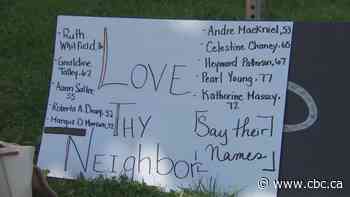 · Ruth
Whitfield
· Geraldine
Talley, 62
· Aaron Salter
55
· Roberta A. Drury, 32
· Margus D. Morrison, 52
· Andre Mackniel, 53
· Celestine Chaney, 65
· Heyward Patterson, 67
· Pearl Young, 77
· Katherine Massey,
72
LOVE
THY
NEIGHBOR
[Say their
Names]
www.cbc.ca